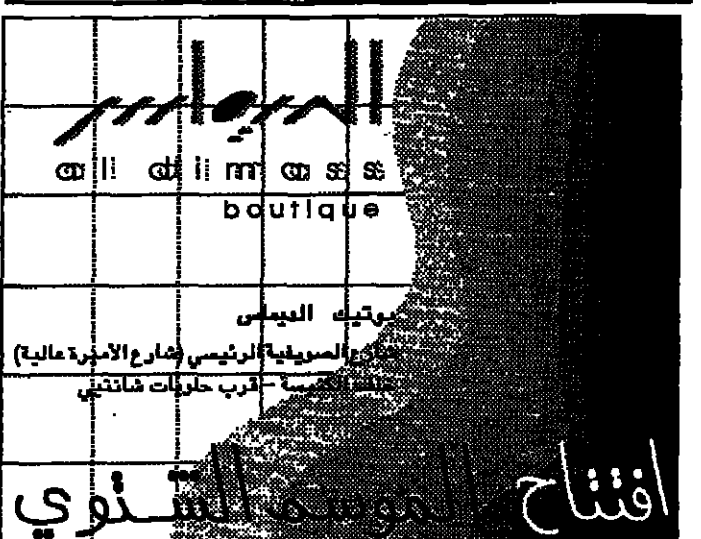 الديماس
al dimass
boutique
بوتيك الديماس
شارع الصويفية الرئيسي (شارع الأميرة عالية)
خلف الكنيسة - قرب حلويات شانتيي
افتتاح الموسم الشتوي